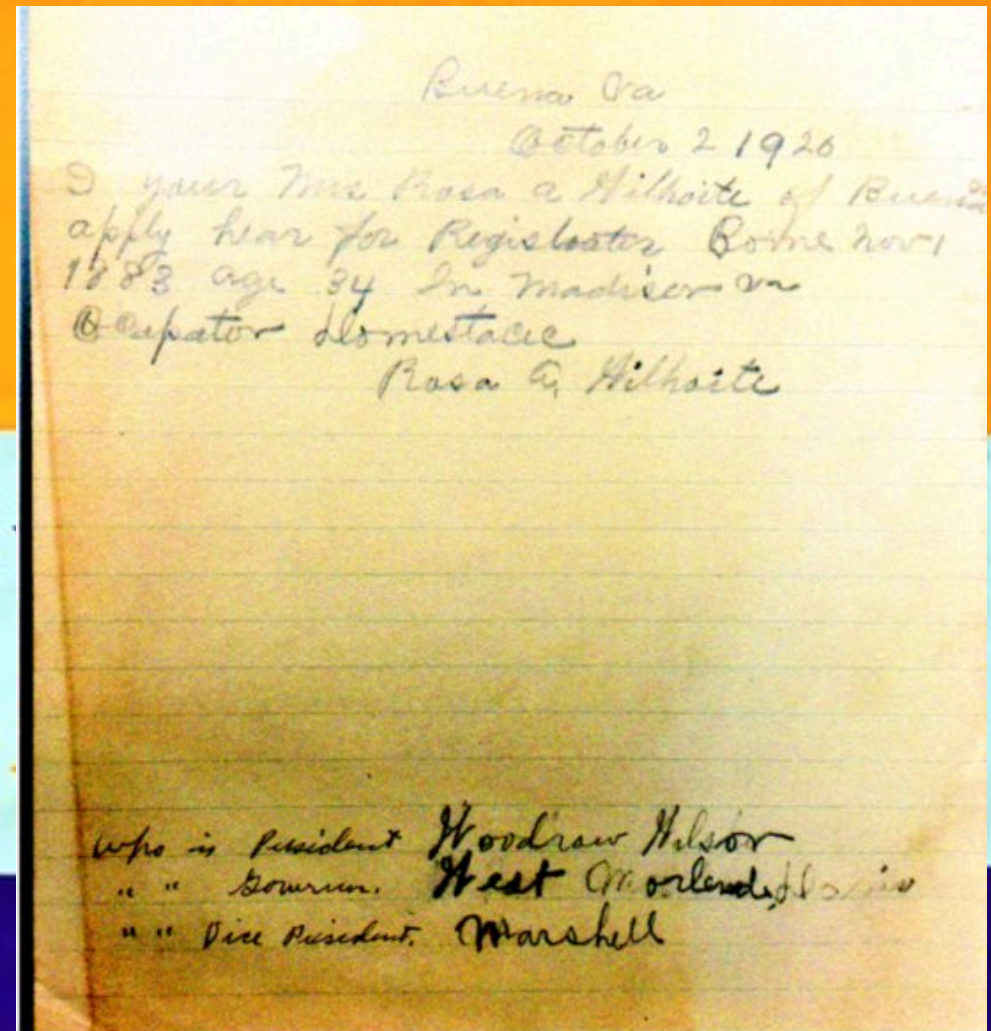 Buena Va
October 2 1920
I your Mrs Rosa a Wilhoite of Buena
apply hear for Registrater Borne Nov 1
1883 age 34 In Madison Va
Ocupator domestacec
Rosa A, Wilhoite
Who is President Woodraw Wilson
" " Governor. West Morland,
" " Vice President. Marshell